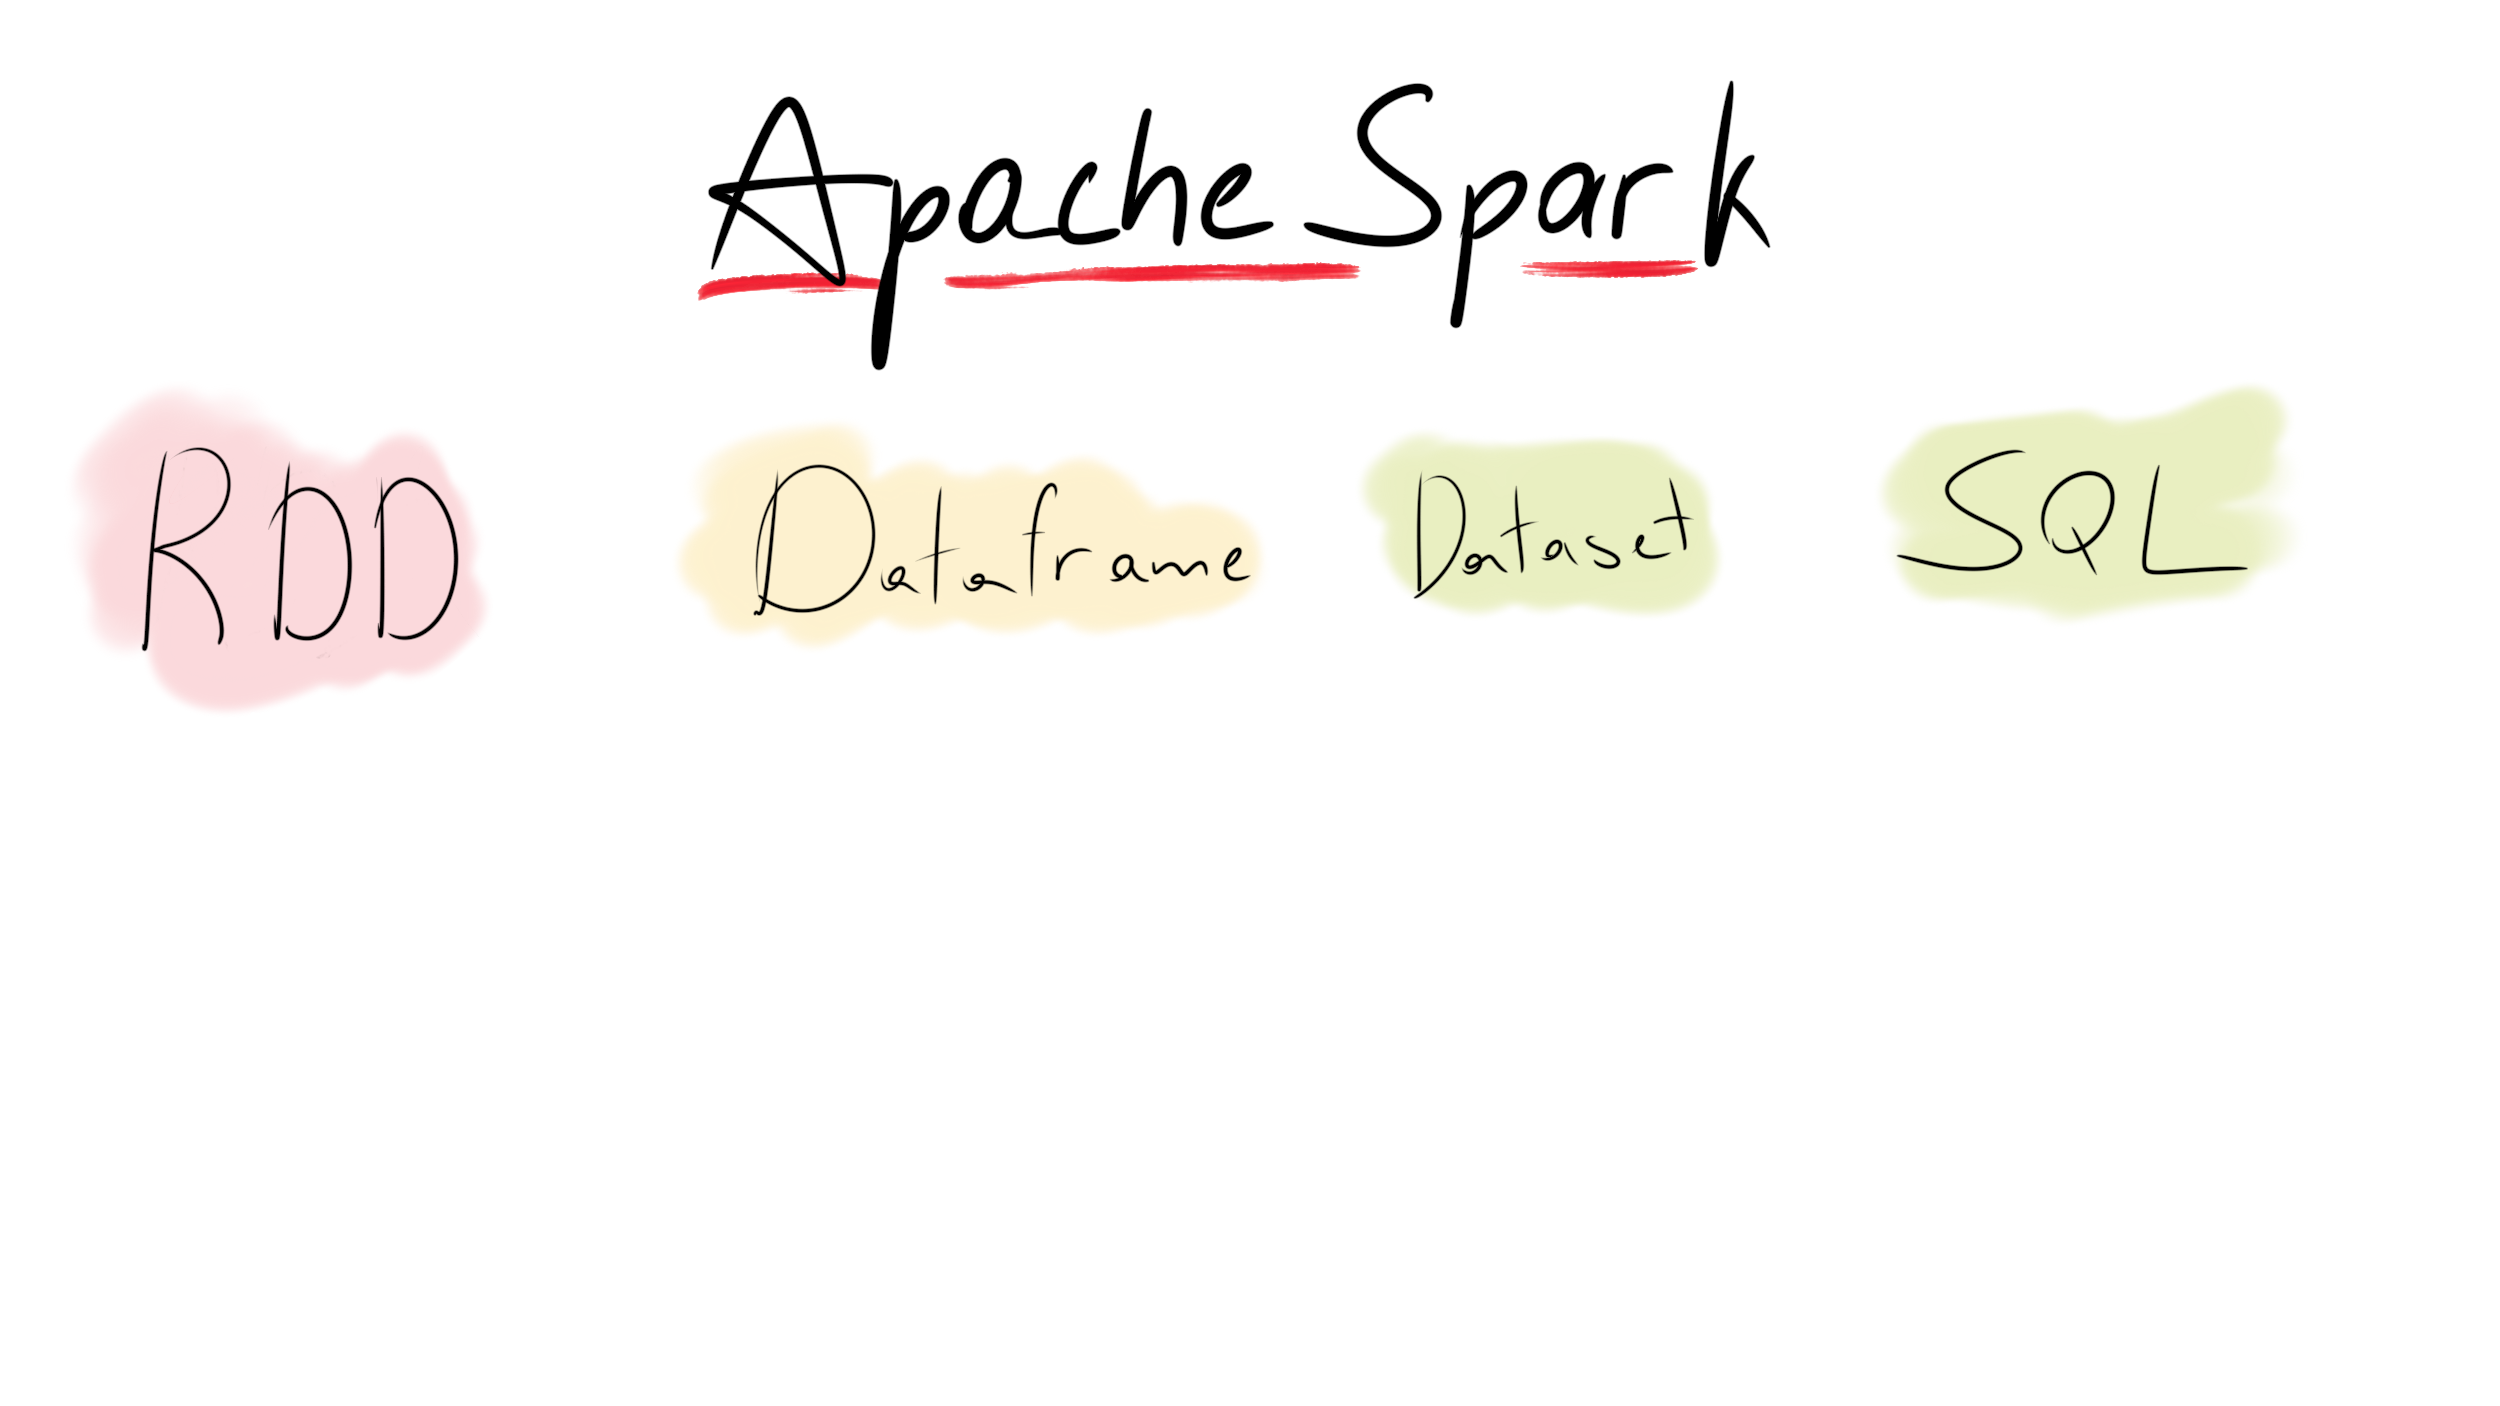 Apache Spark
RDD Dataframe Dataset SQL